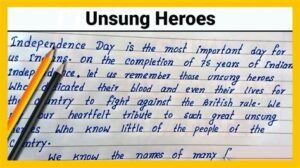 Unsung Heroes
Independence Day is the most important day for
us on the completion of 75 years of Indian
let us remember those unsung heroes
who their blood and even their lives for
the to fight against the British rule. We
heartfelt tribute to such great unsung
who know little of the people of the
We know the names of many